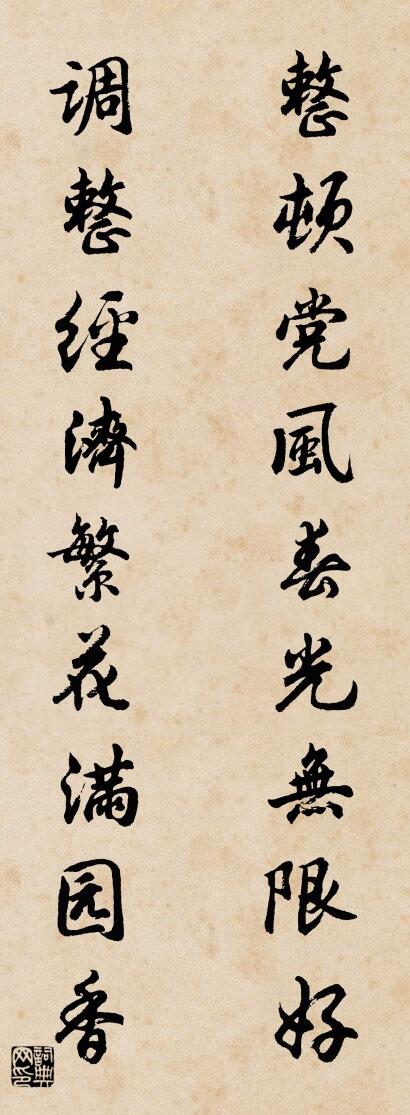 整顿党風春光無限好
调整經濟繁花满园香
詞典网印